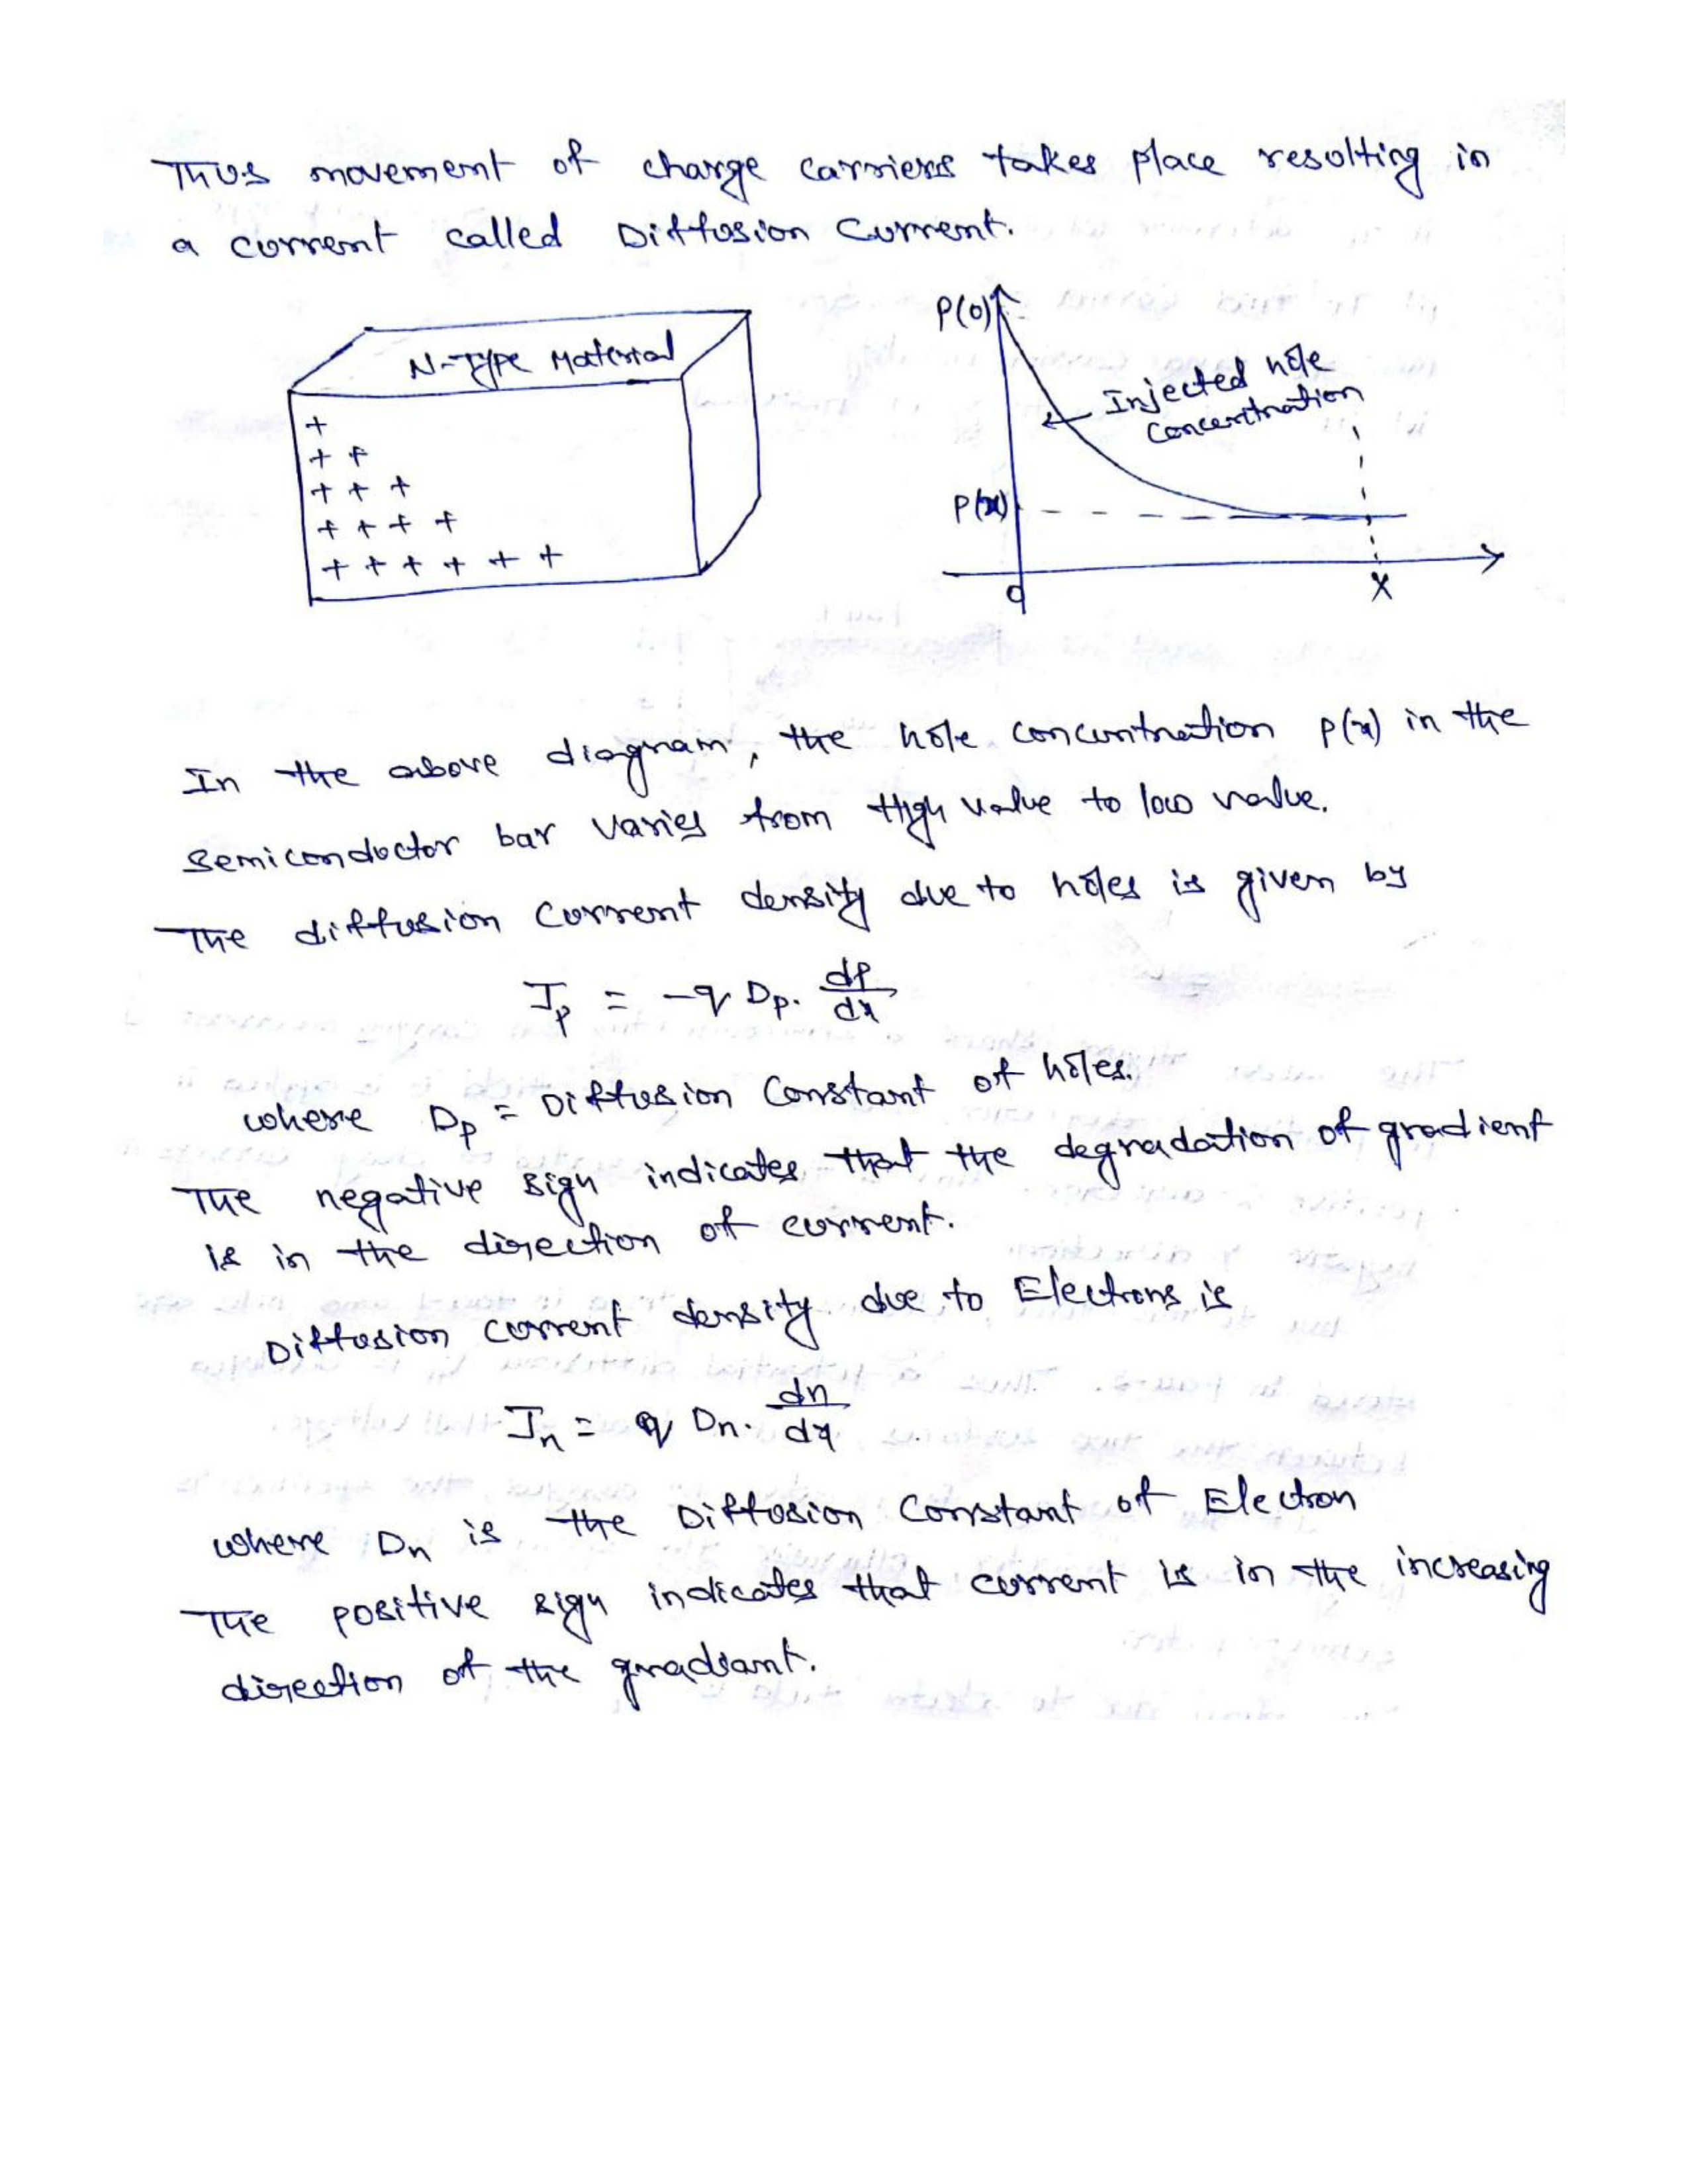 Thus movement of charge carriers takes place resulting in
a current called Diffusion Current.
N-Type Material
+
+ +
+ + +
+ + + +
+ + + + + +
P(0)
Injected hole
Concentration
P(x)
0
x
In the above diagram, the hole concentration p(x) in the
semiconductor bar varies from High value to low value.
The diffusion Current density due to holes is given by
Jp = -q Dp. dp/dx
where Dp = Diffusion Constant of holes.
The negative sign indicates that the degradation of gradient
is in the direction of current.
Diffusion current density due to Electrons is
Jn = q Dn. dn/dx
where Dn is the Diffusion Constant of Electron
The positive sign indicates that current is in the increasing
direction of the gradiant.